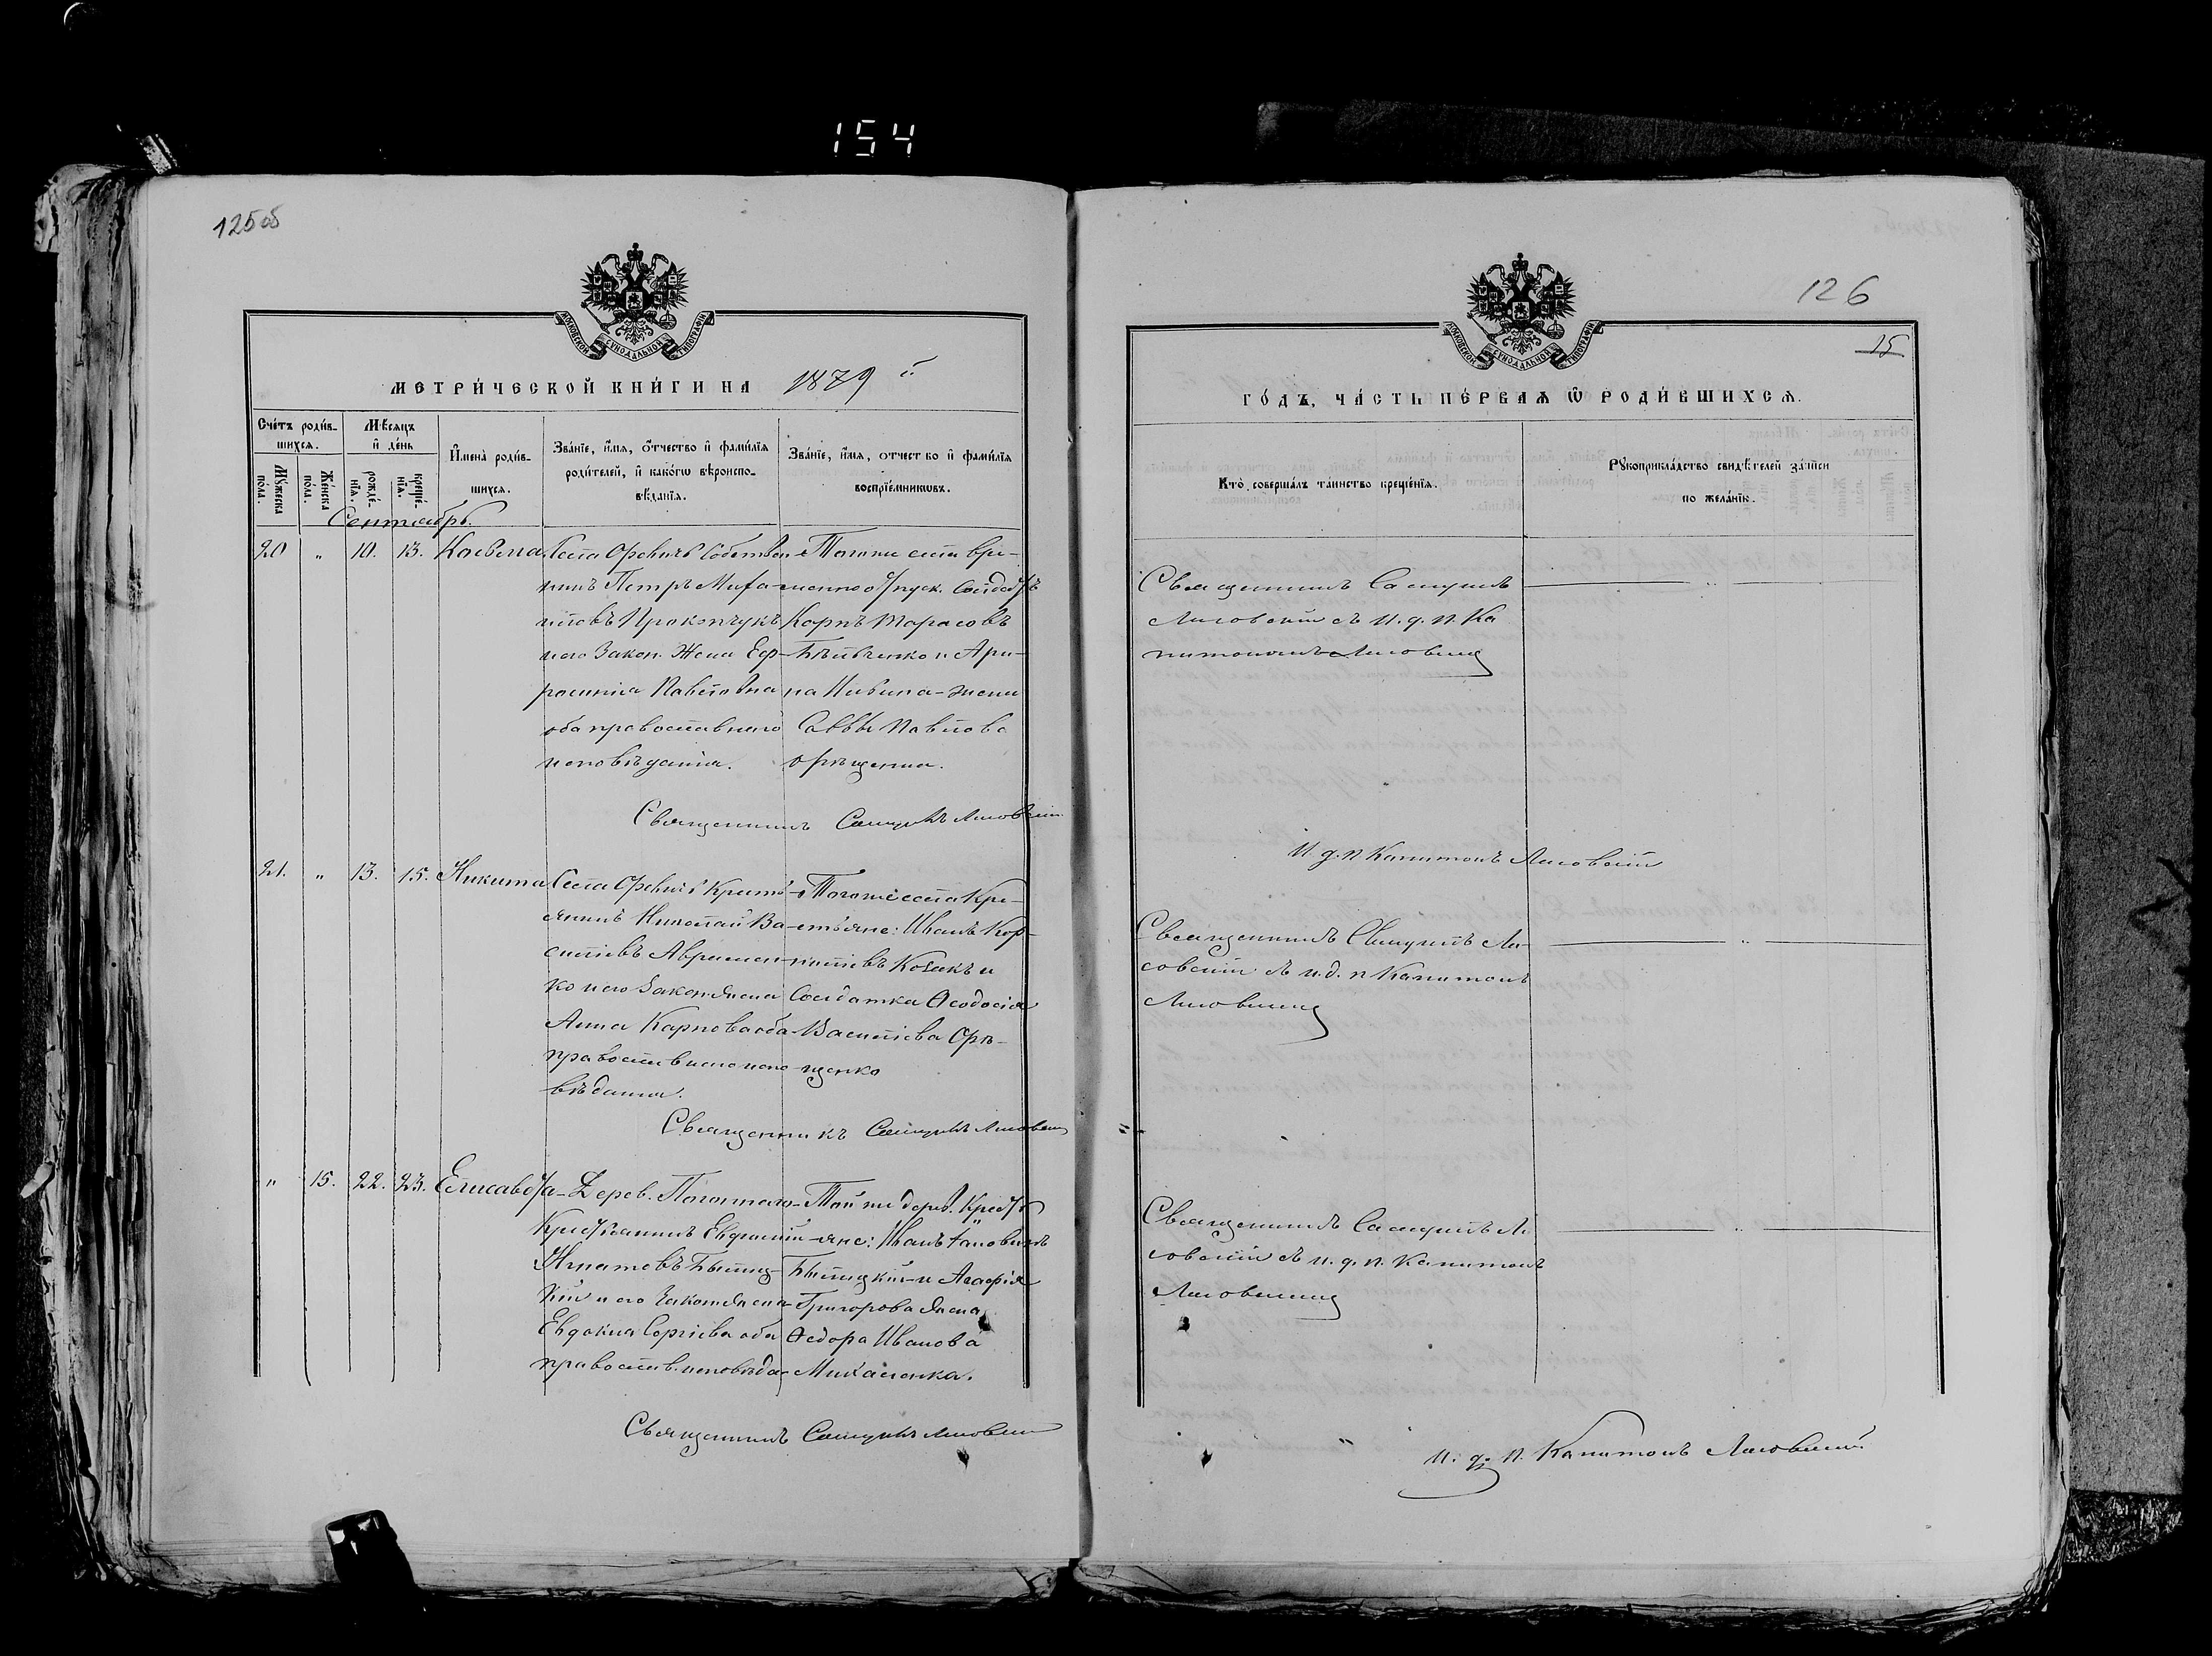 154
125об
МОСКОВСКОЙ СѴНОДАЛЬНОЙ ТИПОГРАФІИ
МЕТРИ́ЧЕСКОЙ КНИ́ГИ НА 1879 й
Сче́тъ роди́в-
шихся.
Мѣ́сяцъ
и҆ де́нь
Мꙋ́жеска
по́ла.
Же́нска
по́ла.
рожде́-
нїѧ.
креще́-
нїѧ.
И҆мена̀ роди́в-
шихся.
Зва́нїе, и҆́мѧ, ѻ҆́тчество и҆ фами́лїѧ
роди́телей, и҆ како́гѡ вѣроиспо-
вѣ́данїѧ.
Зва́нїе, и҆́мѧ, ѻ҆́тчество и҆ фами́лїѧ
воспрїе́мникѡвъ.
Сентябрь.
20 " 10. 13. Козьма
нинъ Петръ Миха-
иловъ Прокопчукъ
и его Закон. Жена Еф-
росинія Павлова
оба православнаго
исповѣданія.
Того же села вре-
менно отпуск. Солдатъ
Карпъ Тарасовъ
на жена
Саввы Павлова
Орѣщенка.
Священникъ Самуилъ Лисовскій
21. " 13. 15. Никита
Села Орѣховъ Кресть-
янинъ Николай Ва-
силіевъ Авраменко
ко и его Закон. Жена
Анна Карпова оба
православнаго испо-
вѣданія.
Того же села Кре-
стьяне: Иванъ Кор-
ниліевъ Козакъ и
Солдатка Ѳеодосія
Василіева Орѣ-
щенко
Священникъ Самуилъ Лисовскій
" 15. 22. 23. Елисавета
Дерев.
Крестьянинъ Евфимій
Игнатовъ Былиц-
кій и его Закон. Жена
Евдокія Сергіева оба
православ. исповѣда.
Той же дерев. Кресть
яне: Иванъ
Былицкій и Агафія
Григорова Жена
Ѳедора Иванова
Михаленка.
Священникъ Самуилъ Лисовскій
126
15
МОСКОВСКОЙ СѴНОДАЛЬНОЙ ТИПОГРАФІИ
ГО́ДЪ, ЧА́СТЬ ПЕ́РВАѦ Ѡ҆ РОДИ́ВШИХСѦ.
Кто̀ соверша́лъ та́инство креще́нїѧ.
Рꙋкоприкла́дство свидѣ́телей за́писи
по жела́нїю.
Священникъ Самуилъ
Лисовскій съ И. д. п. Ка
питономъ Лисовскимъ
И. д. п Капитонъ Лисовскій
Священникъ Самуилъ Ли-
совскій съ и. д. п Капитон
Лисовскимъ
Священникъ Самуилъ Ли
совскій съ и. д. п. Капитон
Лисовскимъ
И. д. п. Капитонъ Лисовскій